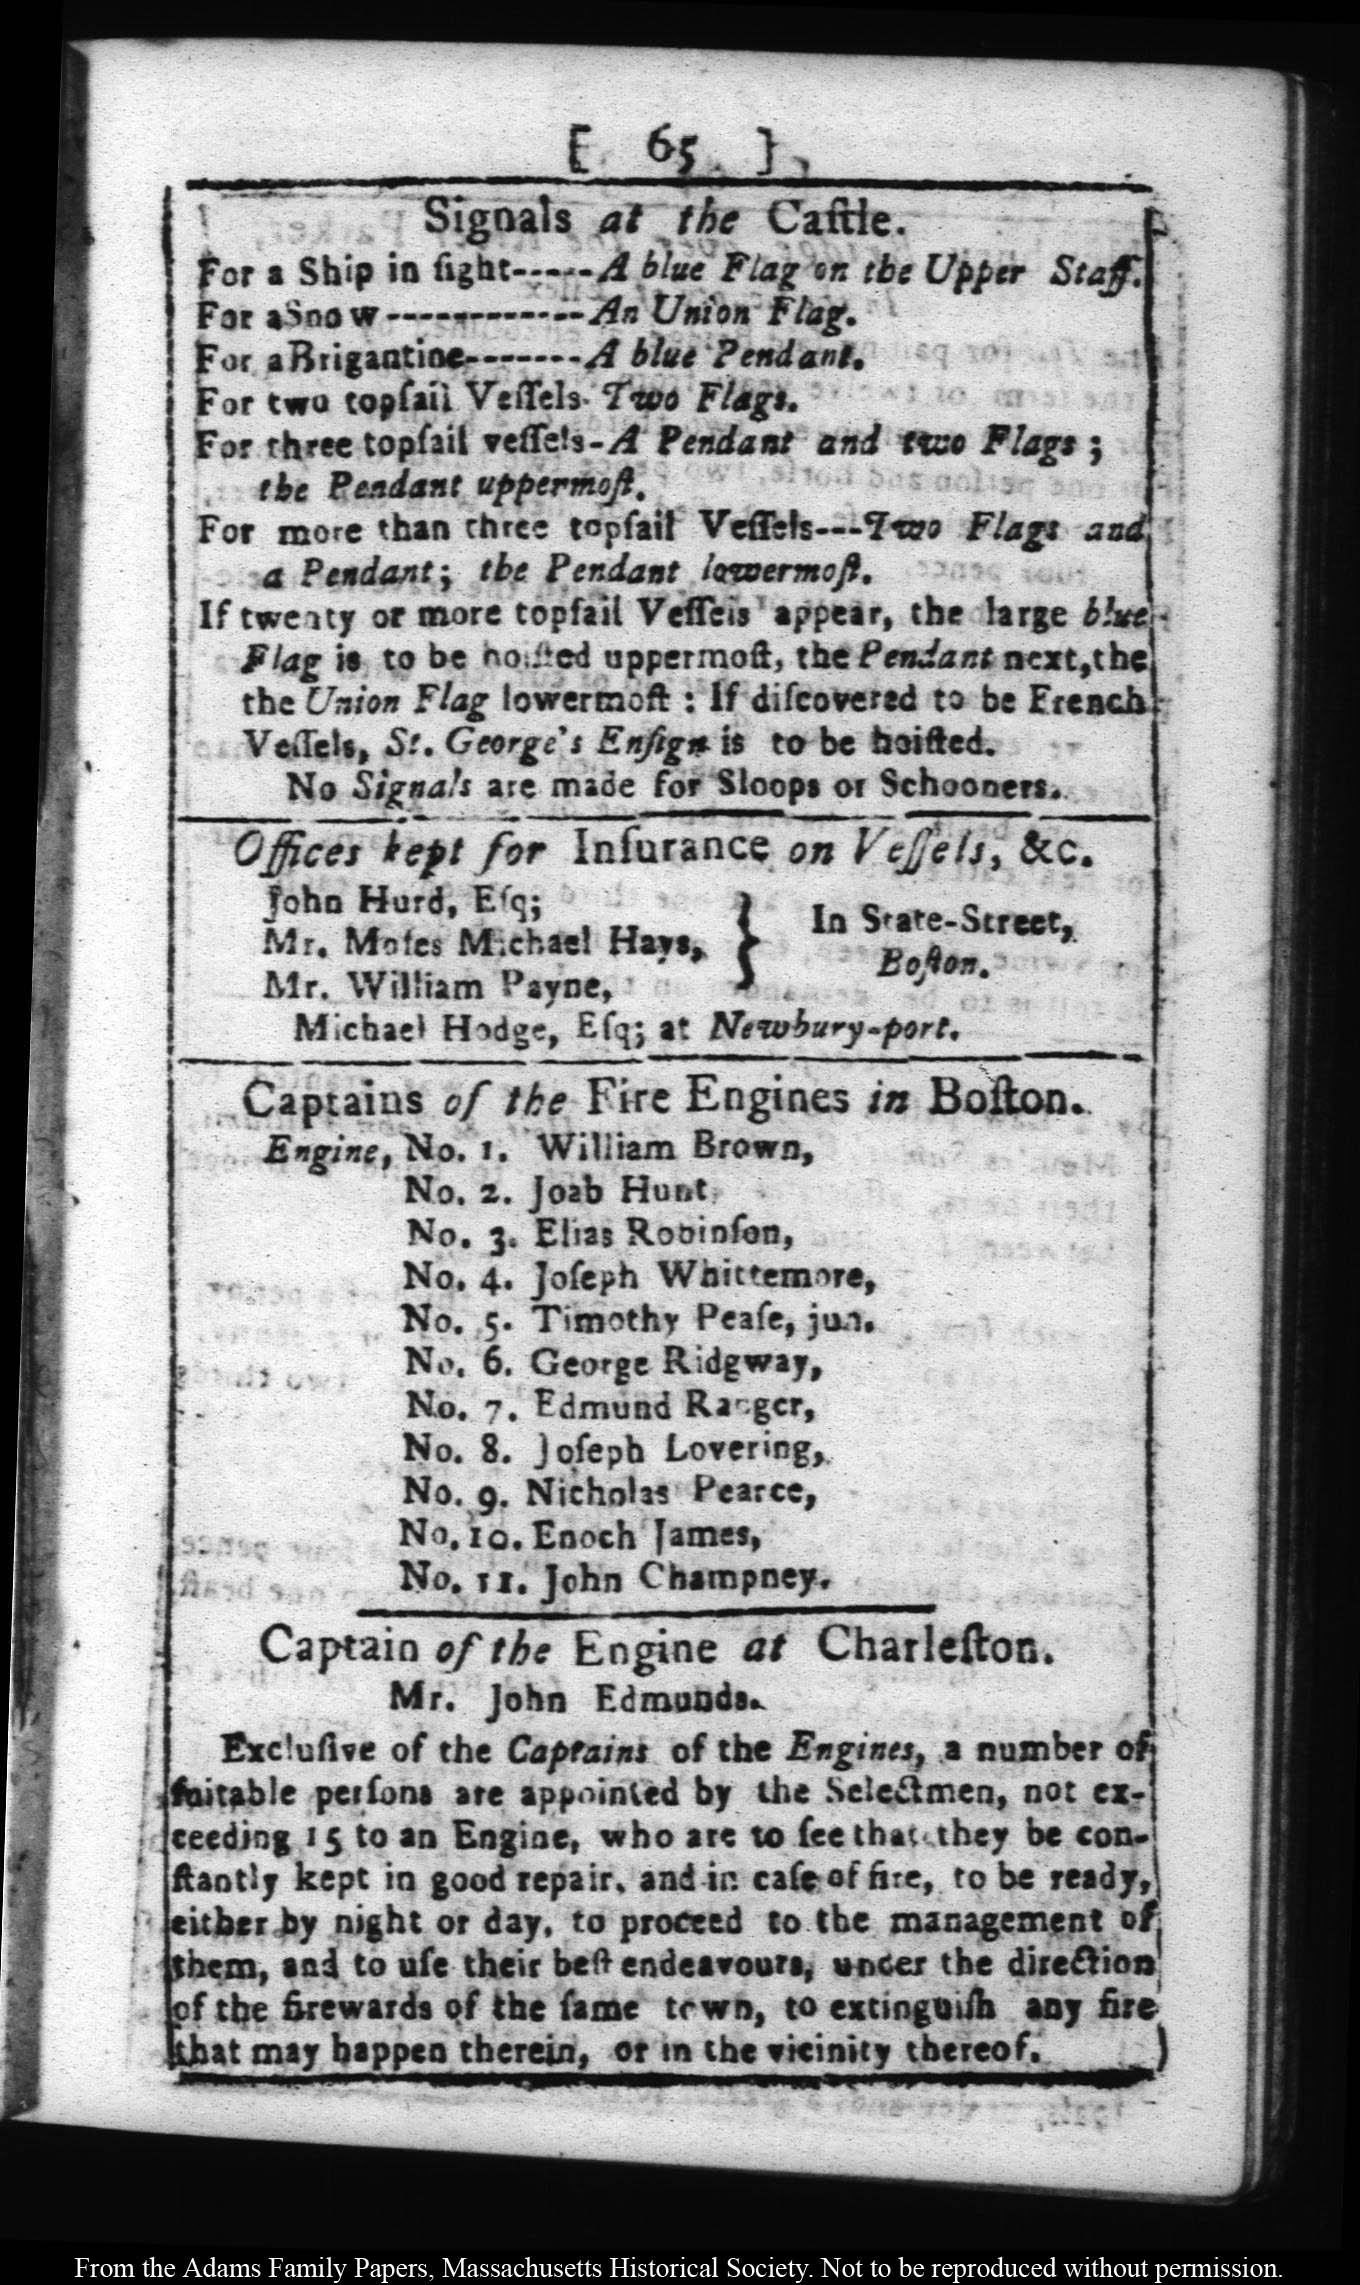 [ 65 ]
Signals at the Caſtle.
For a Ship in ſight-----A blue Flag on the Upper Staff.
For a Snow------------An Union Flag.
For a Brigantine-------A blue Pendant.
For two topſail Veſſels-Two Flags.
For three topſail veſſels-A Pendant and two Flags;
the Pendant uppermoſt.
For more than three topſail Veſſels---Two Flags and
a Pendant; the Pendant lowermoſt.
If twenty or more topſail Veſſels appear, the large blue
Flag is to be hoiſted uppermoſt, the Pendant next, the
the Union Flag lowermoſt: If diſcovered to be French
Veſſels, St. George's Enſign is to be hoiſted.
No Signals are made for Sloops or Schooners.
Offices kept for Inſurance on Veſſels, &c.
John Hurd, Eſq;
Mr. Moſes Michael Hays, } In State-Street,
Mr. William Payne, Boſton.
Michael Hodge, Eſq; at Newbury-port.
Captains of the Fire Engines in Boſton.
Engine, No. 1. William Brown,
No. 2. Joab Hunt,
No. 3. Elias Robinſon,
No. 4. Joſeph Whittemore,
No. 5. Timothy Peaſe, jun.
No. 6. George Ridgway,
No. 7. Edmund Ranger,
No. 8. Joſeph Lovering,
No. 9. Nicholas Pearce,
No. 10. Enoch James,
No. 11. John Champney.
Captain of the Engine at Charleſton.
Mr. John Edmunds.
Excluſive of the Captains of the Engines, a number of
ſuitable perſons are appointed by the Selectmen, not ex-
ceeding 15 to an Engine, who are to ſee that they be con-
ſtantly kept in good repair, and in caſe of fire, to be ready,
either by night or day, to proceed to the management of
them, and to uſe their beſt endeavours, under the direction
of the firewards of the ſame town, to extinguiſh any fire
that may happen therein, or in the vicinity thereof.
From the Adams Family Papers, Massachusetts Historical Society. Not to be reproduced without permission.